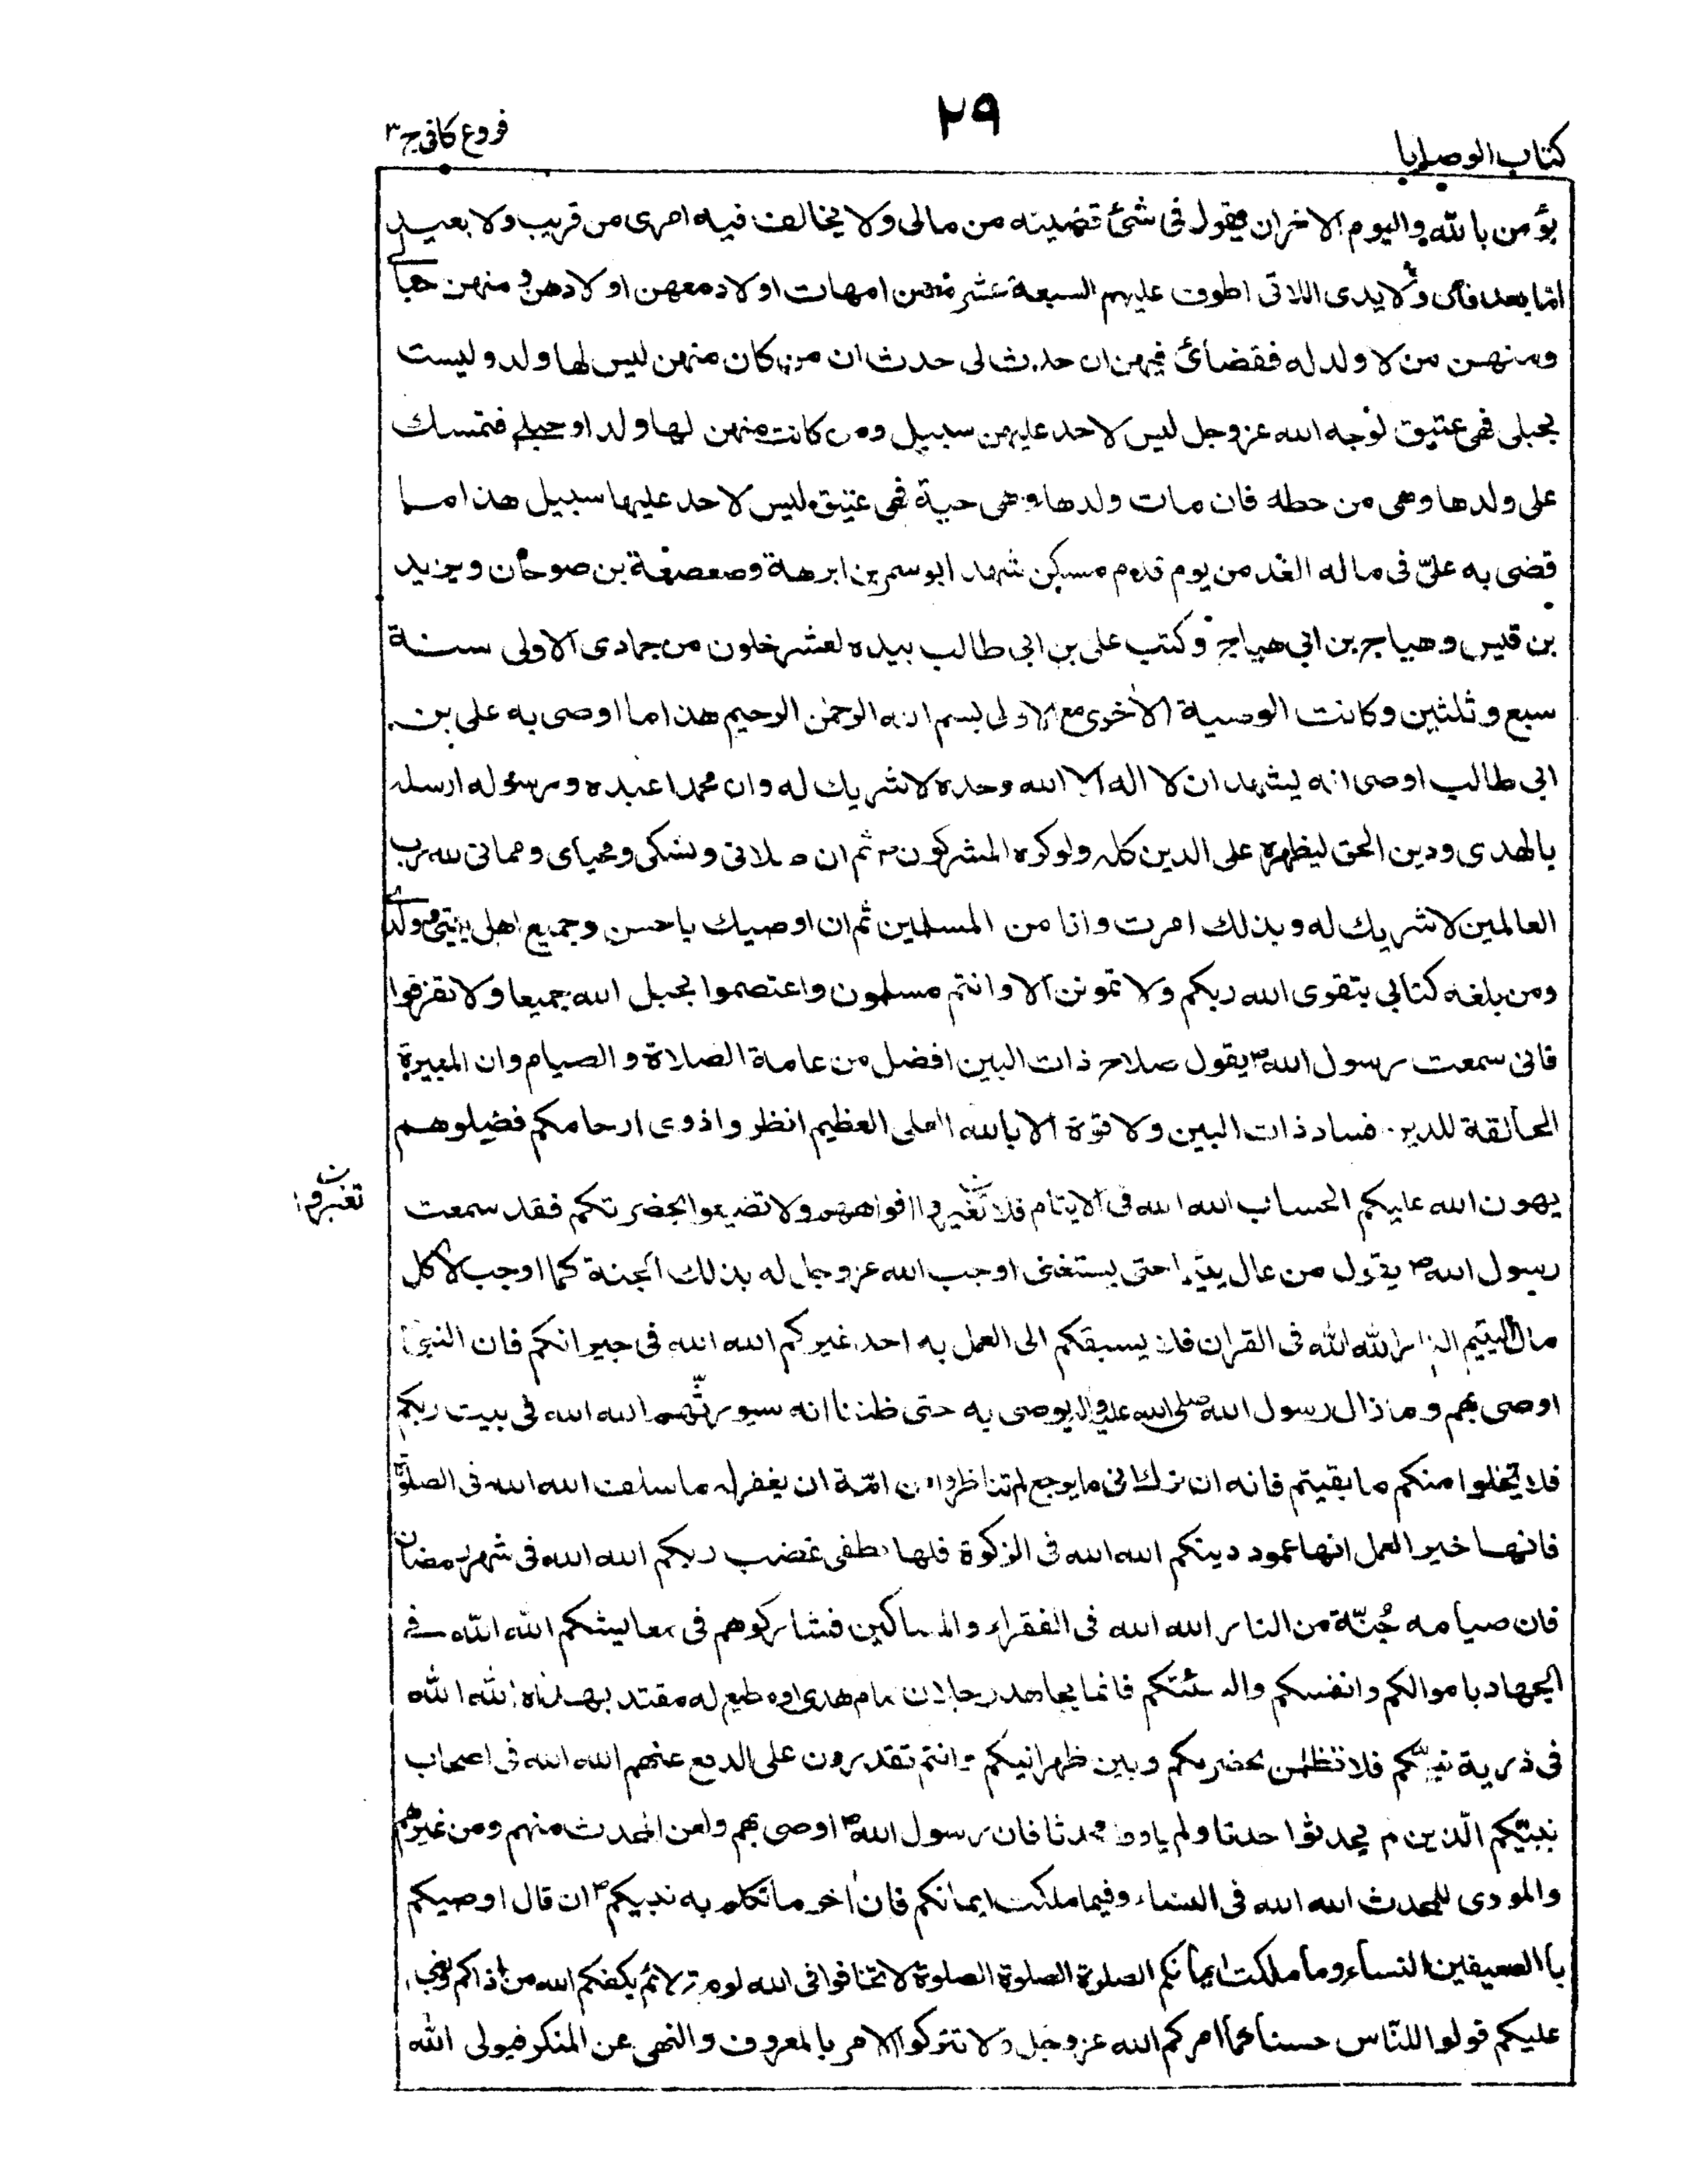 كتاب الوصايا
٢٩
فروع كافى ج ٣
يؤمن بالله واليوم الاخر ان يقول فى شئ قضيته من مالى ولا يخالف فيه امرى من قريب ولا بعيد
اما بعد فان ولايدى اللاتى اطوف عليهم السبعة عشر منهن امهات اولاد معهن اولادهن و منهن حبالى
ومنهن من لا ولد له فقضائ فيهن ان حدث لى حدث ان من كان منهن ليس لها ولد و ليست
بحبلى فهى عتيق لوجه الله عزوجل ليس لاحد عليهن سبيل ومن كانت منهن لها ولد او حبلى فتمسك
على ولدها وهى من حظه فان مات ولدها وهى حية فهى عتيق ليس لاحد عليها سبيل هذا ما
قضى به علىّ فى ماله الغد من يوم قدم مسكن شهد ابو سمر بن ابرهة وصعصعة بن صوحان و يزيد
بن قيس وهياج بن ابى هياج و كتب على بن ابى طالب بيده لعشر خلون من جمادى الاولى سنة
سبع و ثلثين و كانت الوصية الاخرى مع الاولى بسم الله الرحمن الرحيم هذا ما اوصى به على بن
ابى طالب اوصى انه يشهد ان لا اله الا الله وحده لا شريك له وان محمدا عبده ورسوله ارسله
بالهدى ودين الحق ليظهره على الدين كله ولو كره المشركون ثم ان صلاتى ونسكى ومحياى ومماتى لله رب
العالمين لا شريك له و بذلك امرت وانا من المسلمين ثم ان اوصيك يا حسن وجميع اهل بيتى وولدى
ومن بلغه كتابى بتقوى الله ربكم ولا تموتن الا وانتم مسلمون واعتصموا بحبل الله جميعا ولا تفرقوا
فانى سمعت رسول الله ص يقول صلاح ذات البين افضل من عامة الصلاة و الصيام وان المبيرة
الحالقة للدين فساد ذات البين ولا قوة الا بالله العلى العظيم انظروا ذوى ارحامكم فصلوهم
يهون الله عليكم الحساب الله الله فى الايتام فلا تغيروا افواههم ولا تضيعوا بحضرتكم فقد سمعت
تغبروا ن
رسول الله ص يقول من عال يتيما حتى يستغنى اوجب الله عزوجل له بذلك الجنة كما اوجب لاكل
مال اليتيم النار الله الله فى القران فلا يسبقكم الى العمل به احد غيركم الله الله فى جيرانكم فان النبى
اوصى بهم و مازال رسول الله صلى الله عليه واله يوصى به حتى ظننا انه سيورثهم الله الله فى بيت ربكم
فلا يخلوا منكم ما بقيتم فانه ان ترك ما يرجع لم تناظروا امّة ان يغفر له ما سلف الله الله فى الصلوة
فانها خير العمل انها عمود دينكم الله الله فى الزكوة فلها تطفى غضب ربكم الله الله فى شهر رمضان
فان صيامه جُنّة من النار الله الله فى الفقراء و المساكين فشاركوهم فى معايشكم الله الله فى
الجهاد باموالكم وانفسكم والسنتكم فانما يجاهد رجلان امام هدى او مطيع له مقتد بهداه الله الله
فى ذرية نبيكم فلا تظلمن بحضرتكم وبين ظهرانيكم وانتم تقدرون على الدفع عنهم الله الله فى اصحاب
نبيّكم الّذين لم يحدثوا حدثا ولم ياووا محدثا فان رسول الله ص اوصى بهم ولعن المحدث منهم ومن غيرهم
والمودى للمحدث الله الله فى النساء وفيما ملكت ايمانكم فان اخر ما تكلم به نبيكم ص ان قال اوصيكم
باالضعيفين النساء وما ملكت ايمانكم الصلوة الصلوة الصلوة لا تخافوا فى الله لومة لائم يكفكم الله من اذاكم وبغى
عليكم قولوا للنّاس حسنا كما امركم الله عزوجل ولا تتركوا الامر بالمعروف والنهى عن المنكر فيولى الله